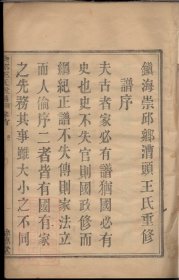 鎮海崇邱鄉漕頭王氏重修
譜序
夫古者家必有譜猶國必有
史也史不失官則國政修而
綱紀正譜不失傳則家法立
而人倫序二者皆有國有家
之先務其事雖大小之不同